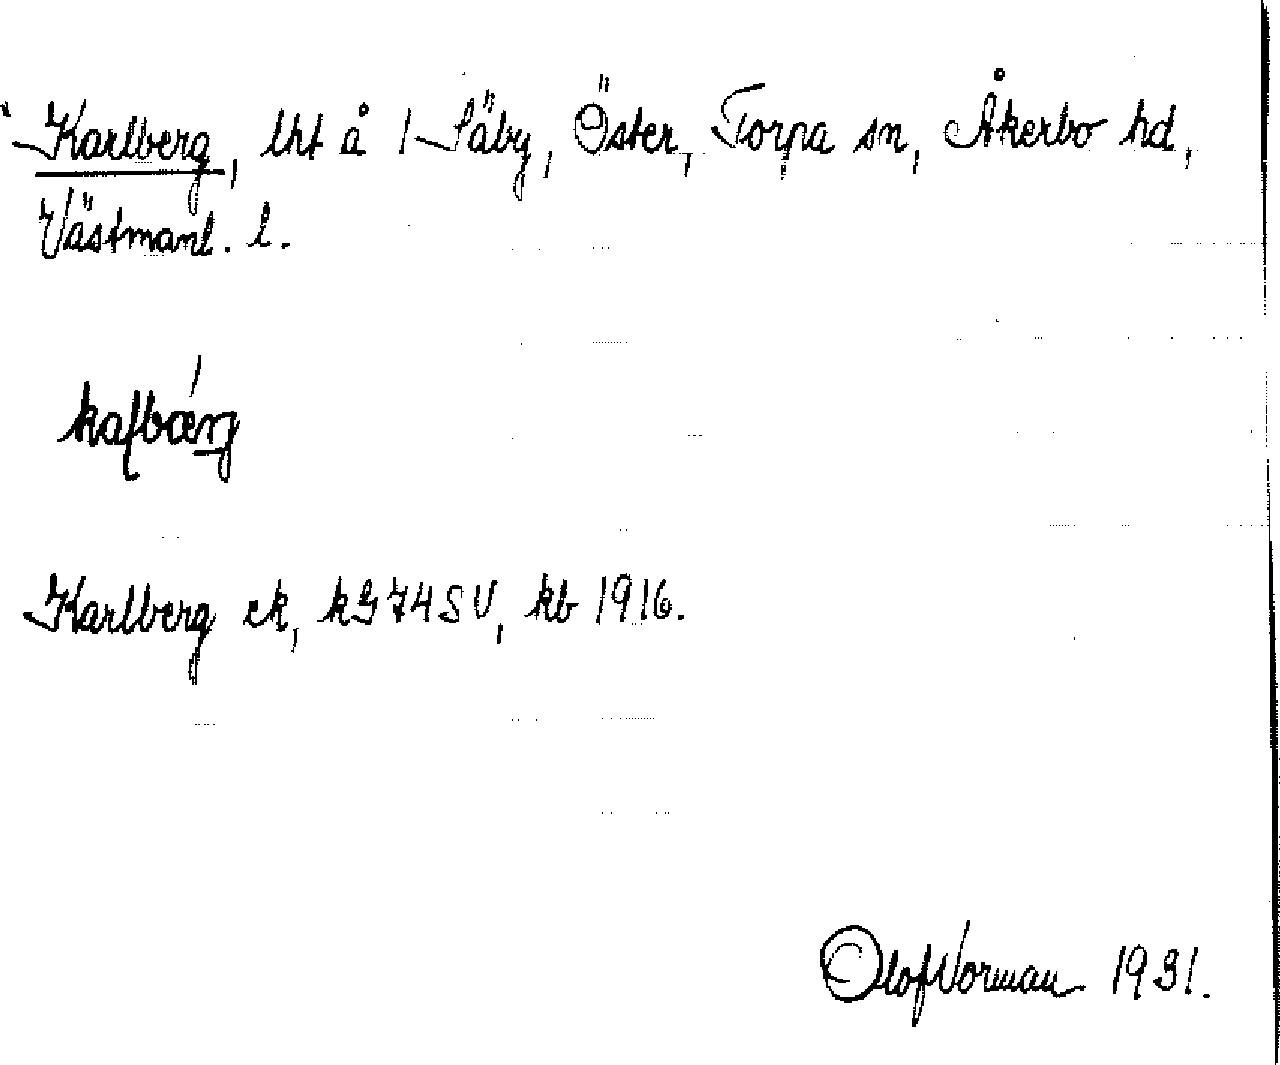 Karlberg, lht å 1 Säby, Öster, Torpa sn, Åkerbo hd,
Västmanl. l.
kaƒbærg
Karlberg ek, kG74SV, kb 1916.
Olof Norman 1931.